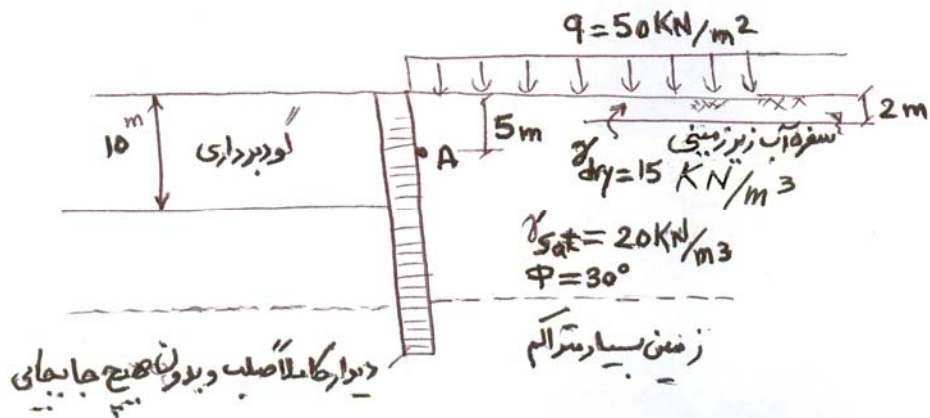 q = 50 KN/m²
10 m
گودبرداری
A
5 m
2 m
سفره آب زیرزمینی
γdry = 15 KN/m³
γsat = 20 KN/m³
Φ = 30°
زمین بسیار متراکم
دیوار کاملاً صلب و بدون هیچ جابجائی